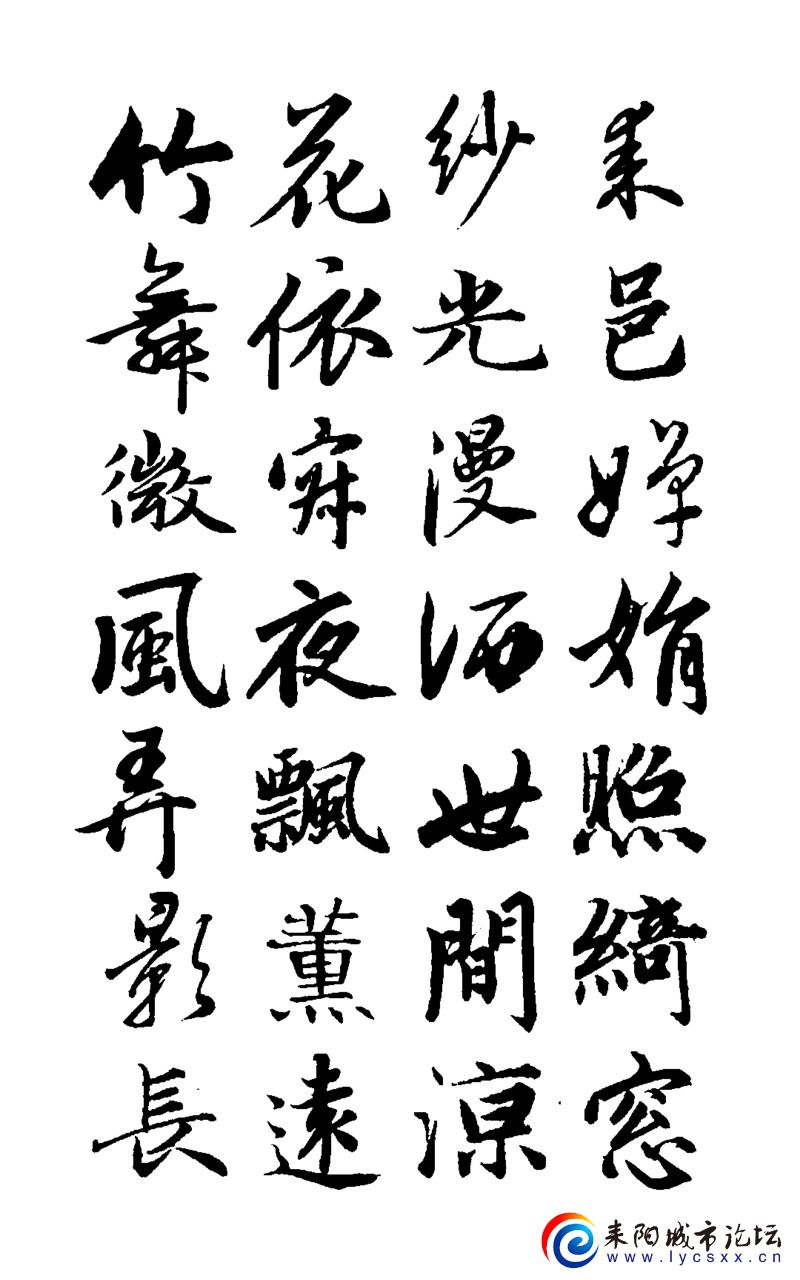 耒邑嬋娟照綺窓
紗光漫洒世間涼
花依寂夜飄薰遠
竹舞微風弄影長
耒阳城市论坛
www.lycsxx.cn